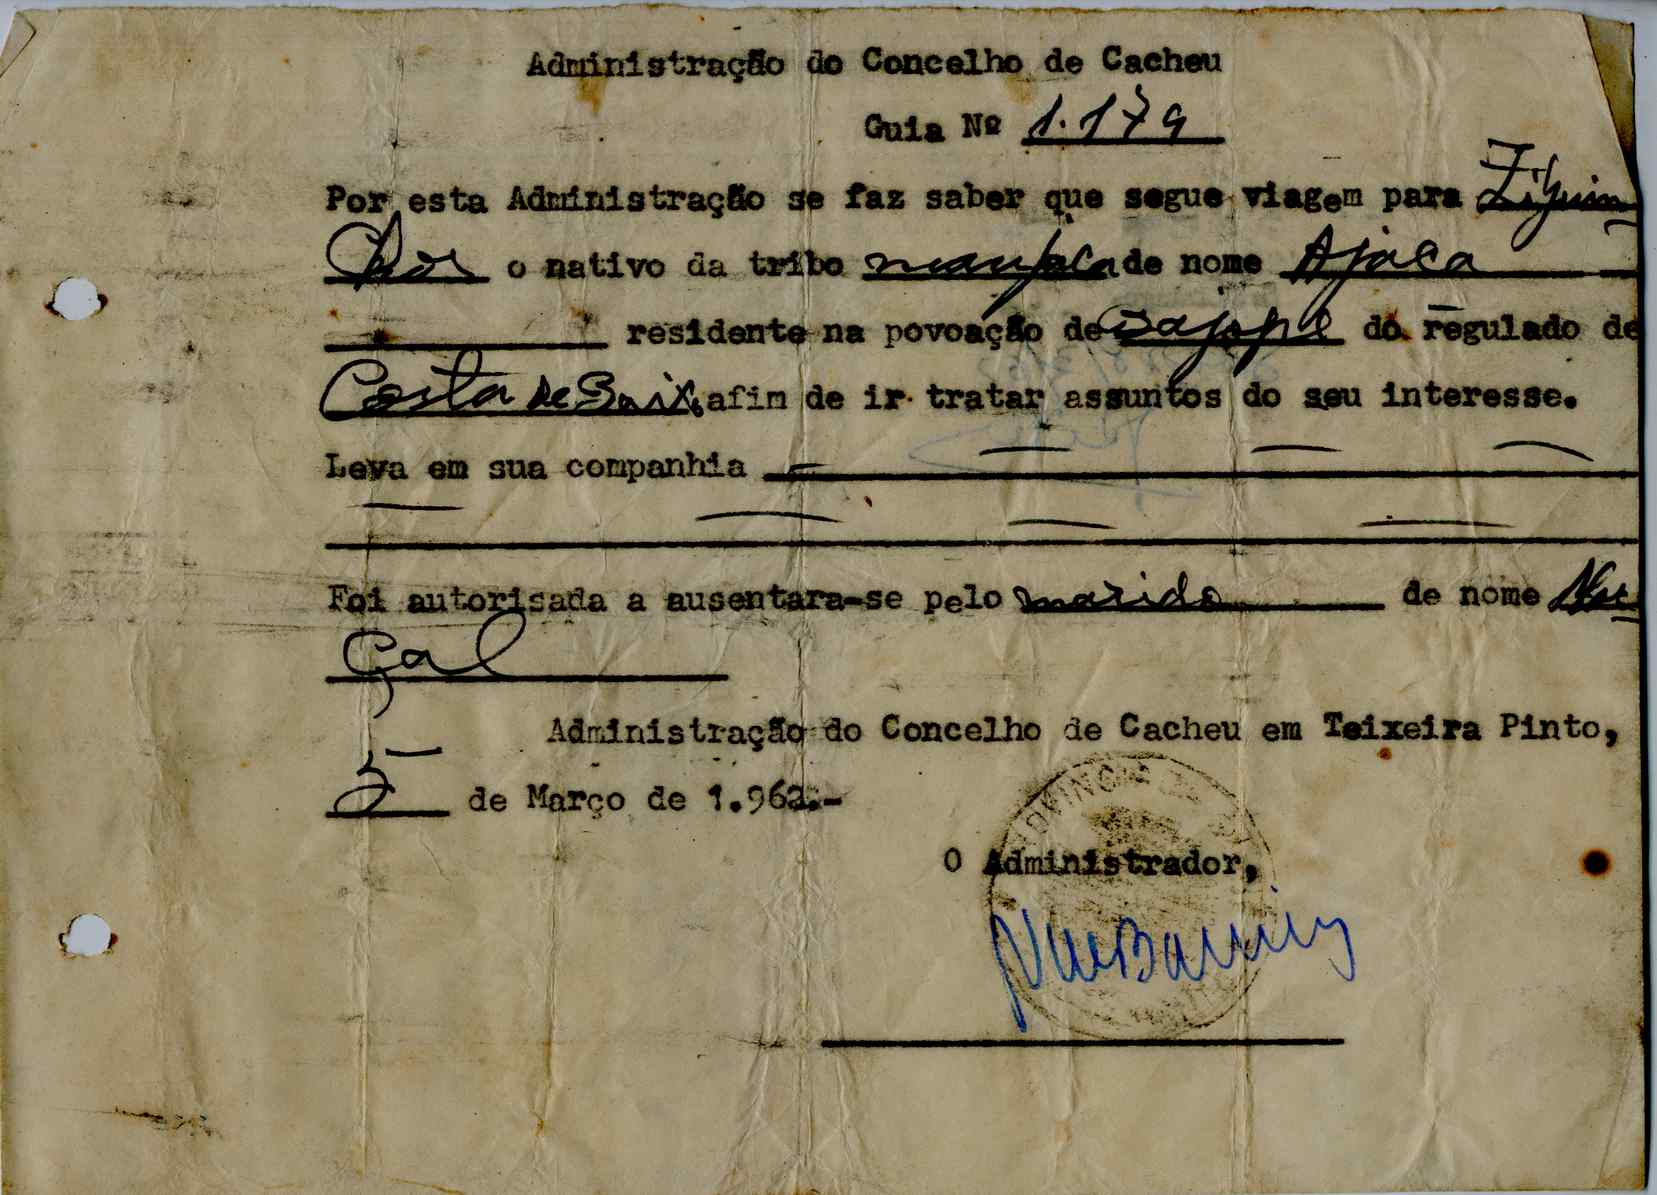 Administração do Concelho de Cacheu
Guia Nº 1.179
Por esta Administração se faz saber que segue viagem para Ziguin
chor o nativo da tribo manjaca de nome Ajaca
residente na povoação de Bajope do regulado de
Costa de Baixo afim de ir tratar assuntos do seu interesse.
Leva em sua companhia
Foi autorisada a ausentara-se pelo marido de nome
Çal
Administração do Concelho de Cacheu em Teixeira Pinto,
5 de Março de 1.962.-
O Administrador,